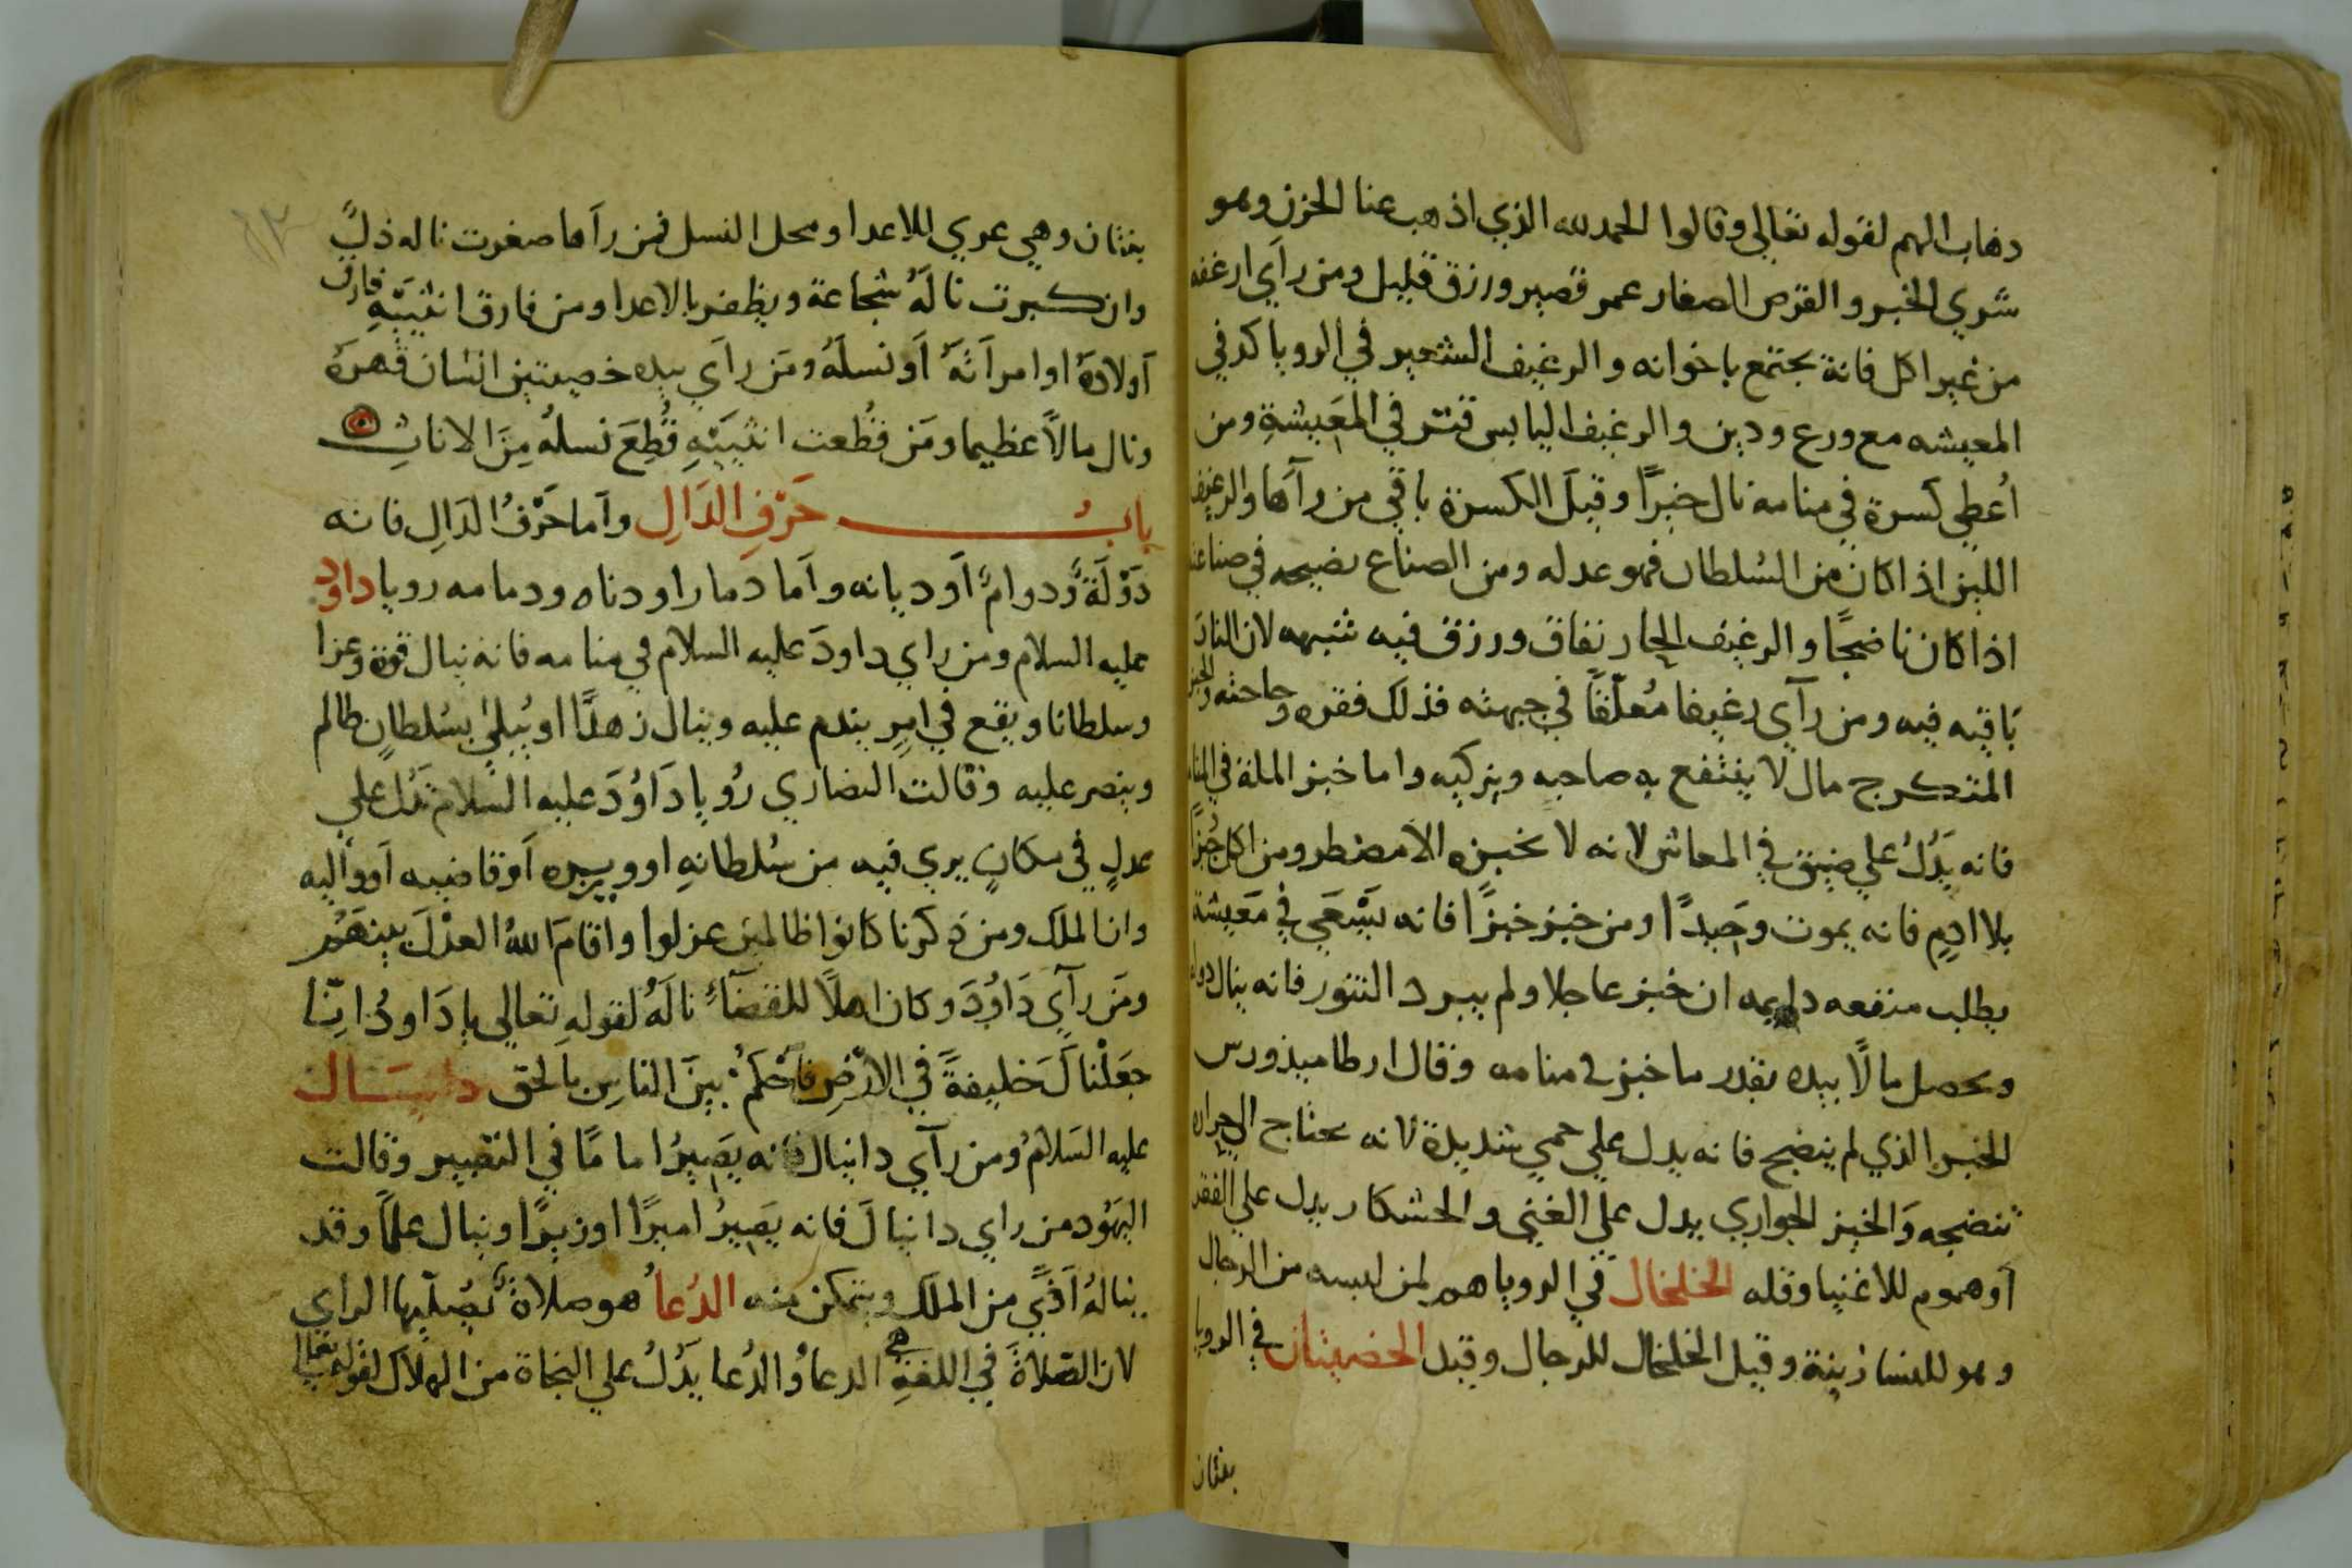 دهاب الهم لقوله تعالي وقالوا الحمد لله الذي اذهب عنا الحزن وهو
شري الخبز والقرص الصغار عمر قصير ورزق قليل ومن رآي ارغفه
من غير اكل فانة يجتمع باخوانه والرغيف الشعير في الرويا كد في
المعيشه مع ورع ودين والرغيف اليابس قتر في المَعِيشةِ ومن
اُعطي كسرة في منامه نال خيرًا وقيلَ الكسرة باقي من رآها والرغيف
اللين اذا كان من السُلطان فهو عدله ومن الصناع نصيحه في صناعته
اذا كان ناضجًا والرغيف الحار نفاق ورزق فيه شبهه لان النار
بَاقيه فيه ومن رآي رغيفا مُعلّقًا في جبهته فذلك فقره وحاجته والخبز
المتكرج مال لا ينتفع به صاحبه ويزكيه واما خبز الملة في المنام
فانه يَدُلُ علي ضيق في المعاش لانه لا يخبزه الا مضطر ومن اكل خُبزًا
بلا ادم فانه يموت وحَيدًا ومن خبز خبزًا فانه يَسْعَي في مَعِيشة
يطلب منفعه دايمه ان خبز عاجلا ولم يبرد التنور فانه ينال دولة
ويحصل مالًا بيده بقدر ما خبز في منامه وقال ارطاميذورس
الخبز الذي لم ينضج فانه يدل علي حمي شديدة لانه يحتاج الي حراره
تنضجه وَالخبز الحواري يدل علي الغني والخشكار يدل علي الفقر
آو هموم للاغنيا وقله الخلخال في الرويا هم لمن لبسه من الرجال
وهو للنسا زينة وقيل الخلخال للرجال وقيد الخصيتان في الرويا
بنتان
بنتان وهي عري للاعدا ومحل النسل فمن رآها صغرت ناله ذلٌ
وان كبرت نالهُ شجاعة ويظفر بالاعدا ومن فارق انثييَهِ فارق
آولادهُ او امراَتهُ اَو نسلَهُ ومَن راَي بيده خصيتين انسان قهرهُ
ونال مالًا عظيما ومَن قُطعت انثييَهِ قُطِعَ نسلهُ مِنَ الاناثِ
بابُ حَرْفِ الدَالِ وآما حَرْفُ الدَالِ فانه
دَوْلَةٌ وَدوامٌ آو ديانه واَما دمارا ودناه ودمامه رويا داود
عليه السلام ومن راي داودَ عليه السلام في منامه فانه ينال قوة وعزا
وسلطانا ويقع في امرٍ يندم عليه وينال زهدًا او يُبلي بسُلطانٍ ظالم
وينصر عليه وقالت النصاري رُويا دَاوُدَ عليه السلام تَدُل علي
عدلٍ في مكانٍ يري فيه من سُلطانهِ او وزيره اَو قاضيه اَو واليه
وان الملك ومن ذكرنا كانوا ظالمين عزلوا واقامَ اللهُ العدْلَ بينهَمُ
ومَن رآي دَاوُدَ وكان اهلًا للقضآءِ نالَهُ لقولهِ تعالي يا دَاودُ اِنّا
جعَلْناكَ خليفةً في الارْضِ فاَحْكمُ بينَ الناسِ بالحق دانيَال
عليه السَلامُ ومن رآي دانيال فانه يصَيرُ اما مًا في التعبير وقالت
اليَهُود من راي دانيالَ فانه يَصِيرُ اميرًا او زيرًا وينال علمًا وقد
ينالهُ اَذيً من الملك ويتمكن منه الدُعآُ هو صلاةٌ يُصلّيها الراي
لان الصَلاةَ في اللغةِ هي الدعآُ والدُعا يَدُلُ علي النجاة من الهلاك لقوله تعالي